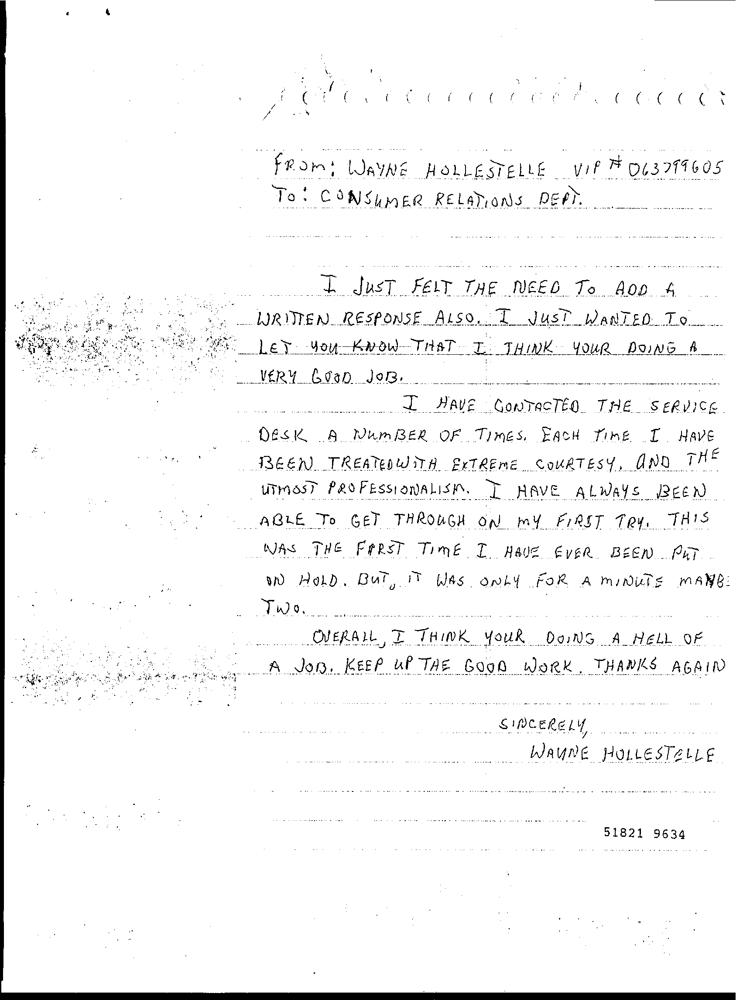 FROM: WAYNE HOLLESTELLE VIP # 063799605
TO: CONSUMER RELATIONS DEPT.
I JUST FELT THE NEED TO ADD A
WRITTEN RESPONSE ALSO. I JUST WANTED TO
LET YOU KNOW THAT I THINK YOUR DOING A
VERY GOOD JOB.
I HAVE CONTACTED THE SERVICE
DESK A NUMBER OF TIMES. EACH TIME I HAVE
BEEN TREATED WITH EXTREME COURTESY, AND THE
UTMOST PROFESSIONALISM. I HAVE ALWAYS BEEN
ABLE TO GET THROUGH ON MY FIRST TRY. THIS
WAS THE FIRST TIME I HAVE EVER BEEN PUT
ON HOLD. BUT, IT WAS ONLY FOR A MINUTE MAYBE
TWO.
OVERALL, I THINK YOUR DOING A HELL OF
A JOB. KEEP UP THE GOOD WORK. THANKS AGAIN
SINCERELY,
WAYNE HOLLESTELLE
51821 9634